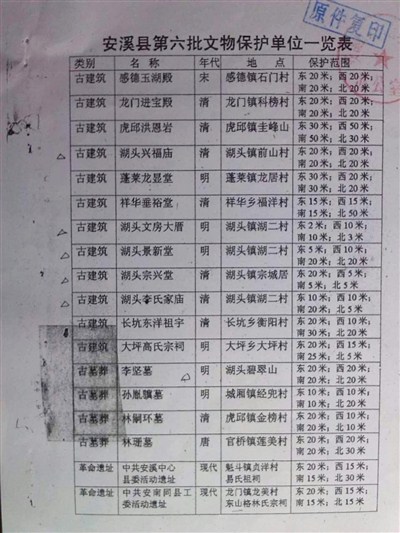 原件复印
安溪县第六批文物保护单位一览表
类别 名称 年代 地点 保护范围
古建筑 感德玉湖殿 宋 感德镇石门村 东20米；西20米；
南20米；北20米
古建筑 龙门进宝殿 清 龙门镇科榜村 东20米；西20米；
南20米；北20米
古建筑 虎邱洪恩岩 清 虎邱镇圭峰山 东50米；西30米；
南50米；北30米
古建筑 湖头兴福庙 清 湖头镇前山村 东20米；西20米；
南20米；北20米
古建筑 蓬莱龙显堂 明 蓬莱镇龙居村 东30米；西20米；
南30米；北20米
古建筑 祥华垂裕堂 清 祥华乡福洋村 东15米；西15米；
南15米；北50米
古建筑 湖头文房大厝 明 湖头镇湖二村 东2米；西10米；
南10米；北3米
古建筑 湖头景新堂 明 湖头镇湖二村 东5米；西10米；
南20米；北20米
古建筑 湖头宗兴堂 清 湖头镇宗城居 东20米；西5米；
南5米；北5米
古建筑 湖头李氏家庙 清 湖头镇湖二村 东10米；西10米；
南10米；北20米
古建筑 长坑东洋祖宇 清 长坑乡衡阳村 东20米；西20米；
南20米；北20米
古建筑 大坪高氏宗祠 明 大坪乡大坪村 东20米；西15米；
南25米；北5米
古墓葬 李坚墓 明 湖头碧翠山 东20米；西20米；
南20米；北20米
古墓葬 孙胤骥墓 明 城厢镇经兜村 东10米；西10米；
南10米；北10米
古墓葬 林嗣环墓 清 虎邱镇金榜村 东20米；西20米；
南20米；北20米
古墓葬 林珊墓 唐 官桥镇莲美村 东20米；西20米；
南10米；北30米
革命遗址 中共安溪中心
县委活动遗址 现代 魁斗镇贞洋村
易氏祖祠 东20米；西15米；
南15米；北30米
革命遗址 中共安南同县工
委活动遗址 现代 龙门镇龙美村
东山格林氏宗祠 东20米；西15米；
南15米；北15米